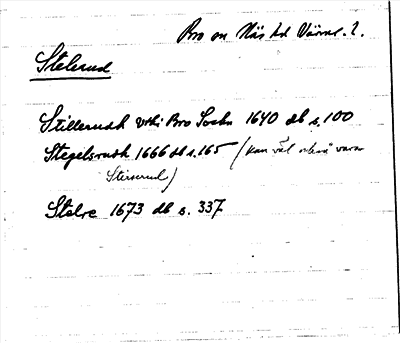 Bro sn Näs hd Värml. l.
Stelerud
Stillerudh vthi Bro Sochn 1640 db s. 100
Stegelsrudh 1666 db s. 165 (kan väl också vara
Stiserud)
Stelre 1673 db s. 337